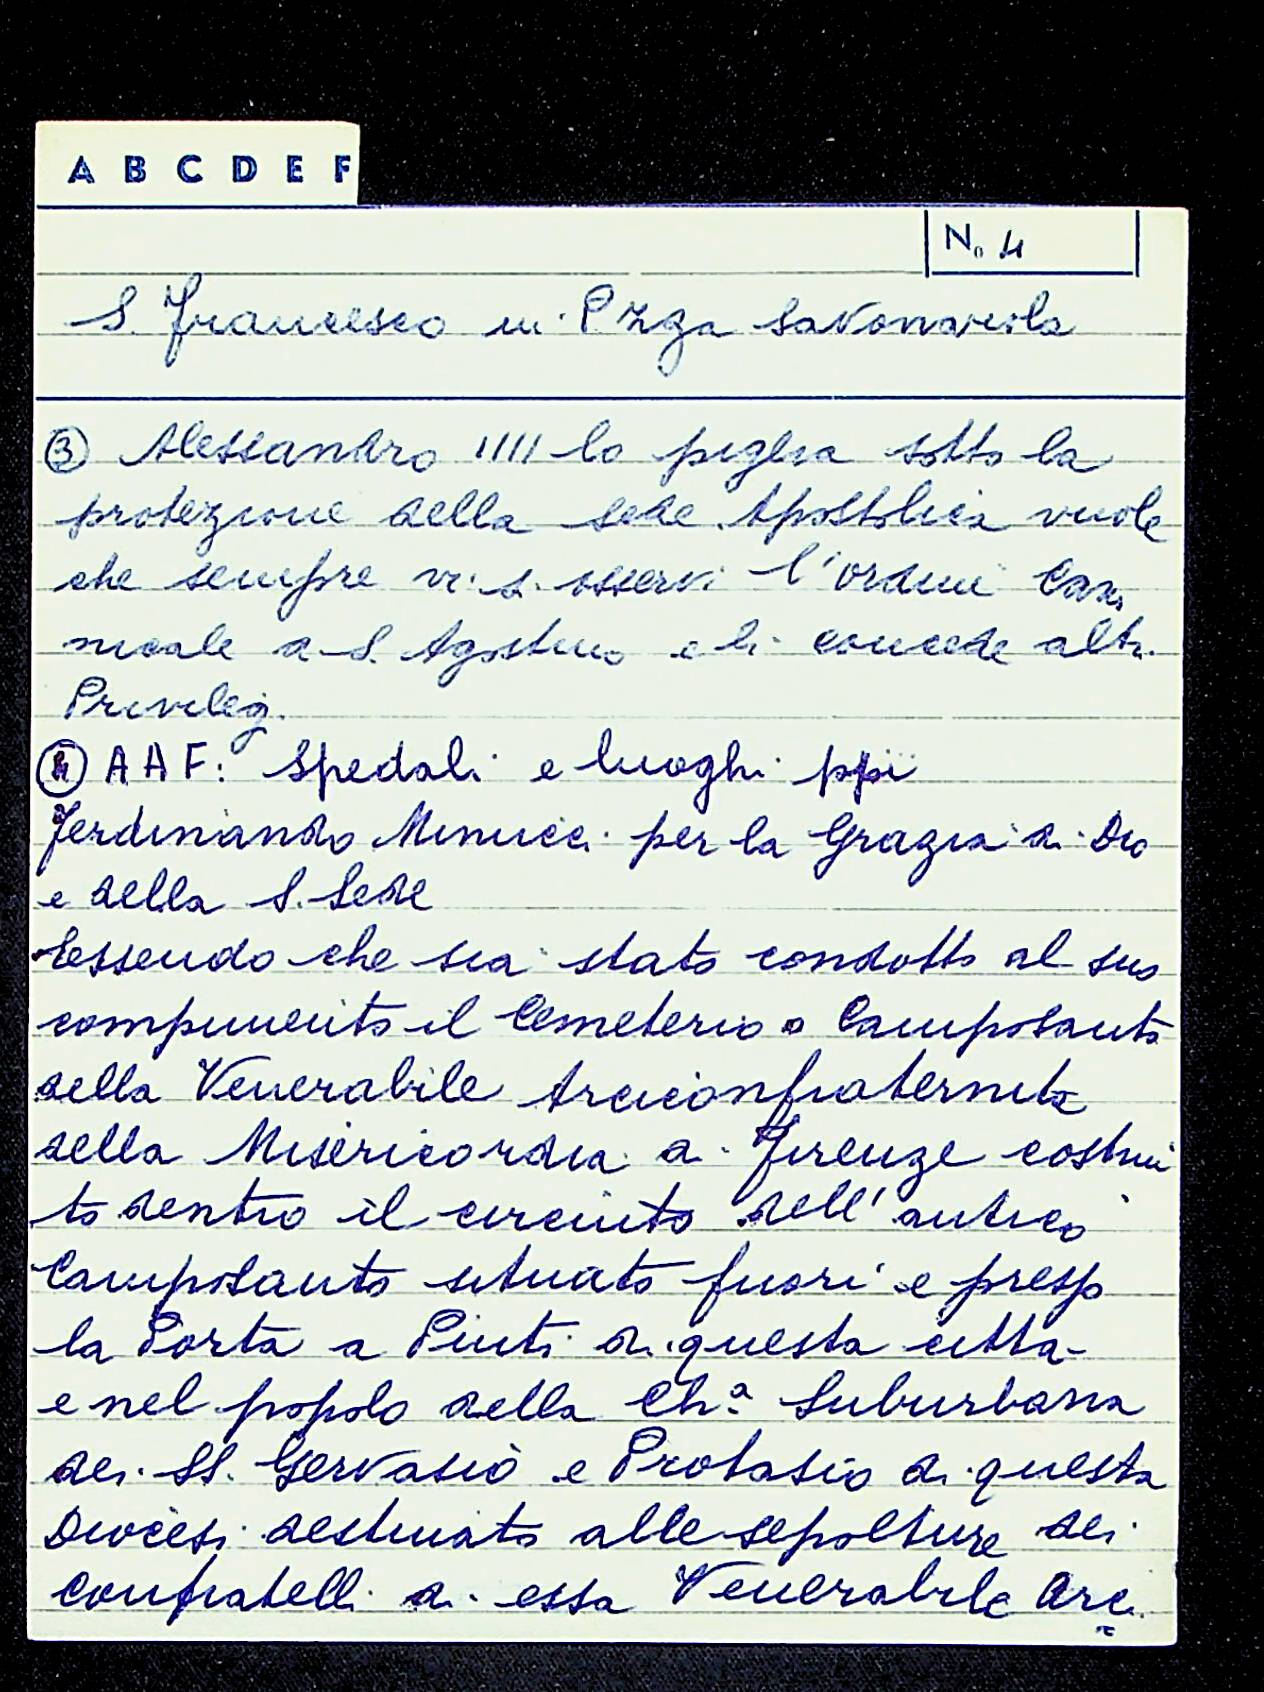 A B C D E F
No 4
S. Francesco in Pzza Savonarola
③ Alessandro IIII lo piglia sotto la
protezione della sede Apostolica vuole
che sempre vi si osservi l'ordine Cano
nicale di S. Agostino e li concede altri
Privilegi.
④ A A F: Spedali e luoghi ppii
Ferdinando Minucci per la Grazia di Dio
e della S. Sede
Essendo che sia stato condotto al suo
compimento il Cemeterio o Camposanto
della Venerabile Arciconfraternita
della Misericordia di Firenze costrui
to dentro il circuito dell'antico
Camposanto situato fuori e presso
la Porta a Pinti di questa città
e nel popolo della Ch.ª Suburbana
dei SS. Gervasio e Protasio di questa
Diocesi destinato alle sepolture dei
Confratelli di essa Venerabile Arci